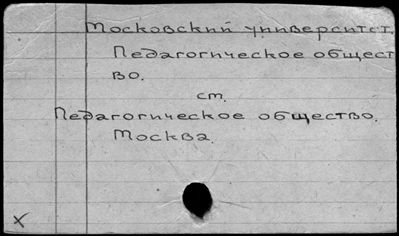 Московский университет.
Педагогическое общест
во.
см.
Педагогическое общество.
Москва.
X